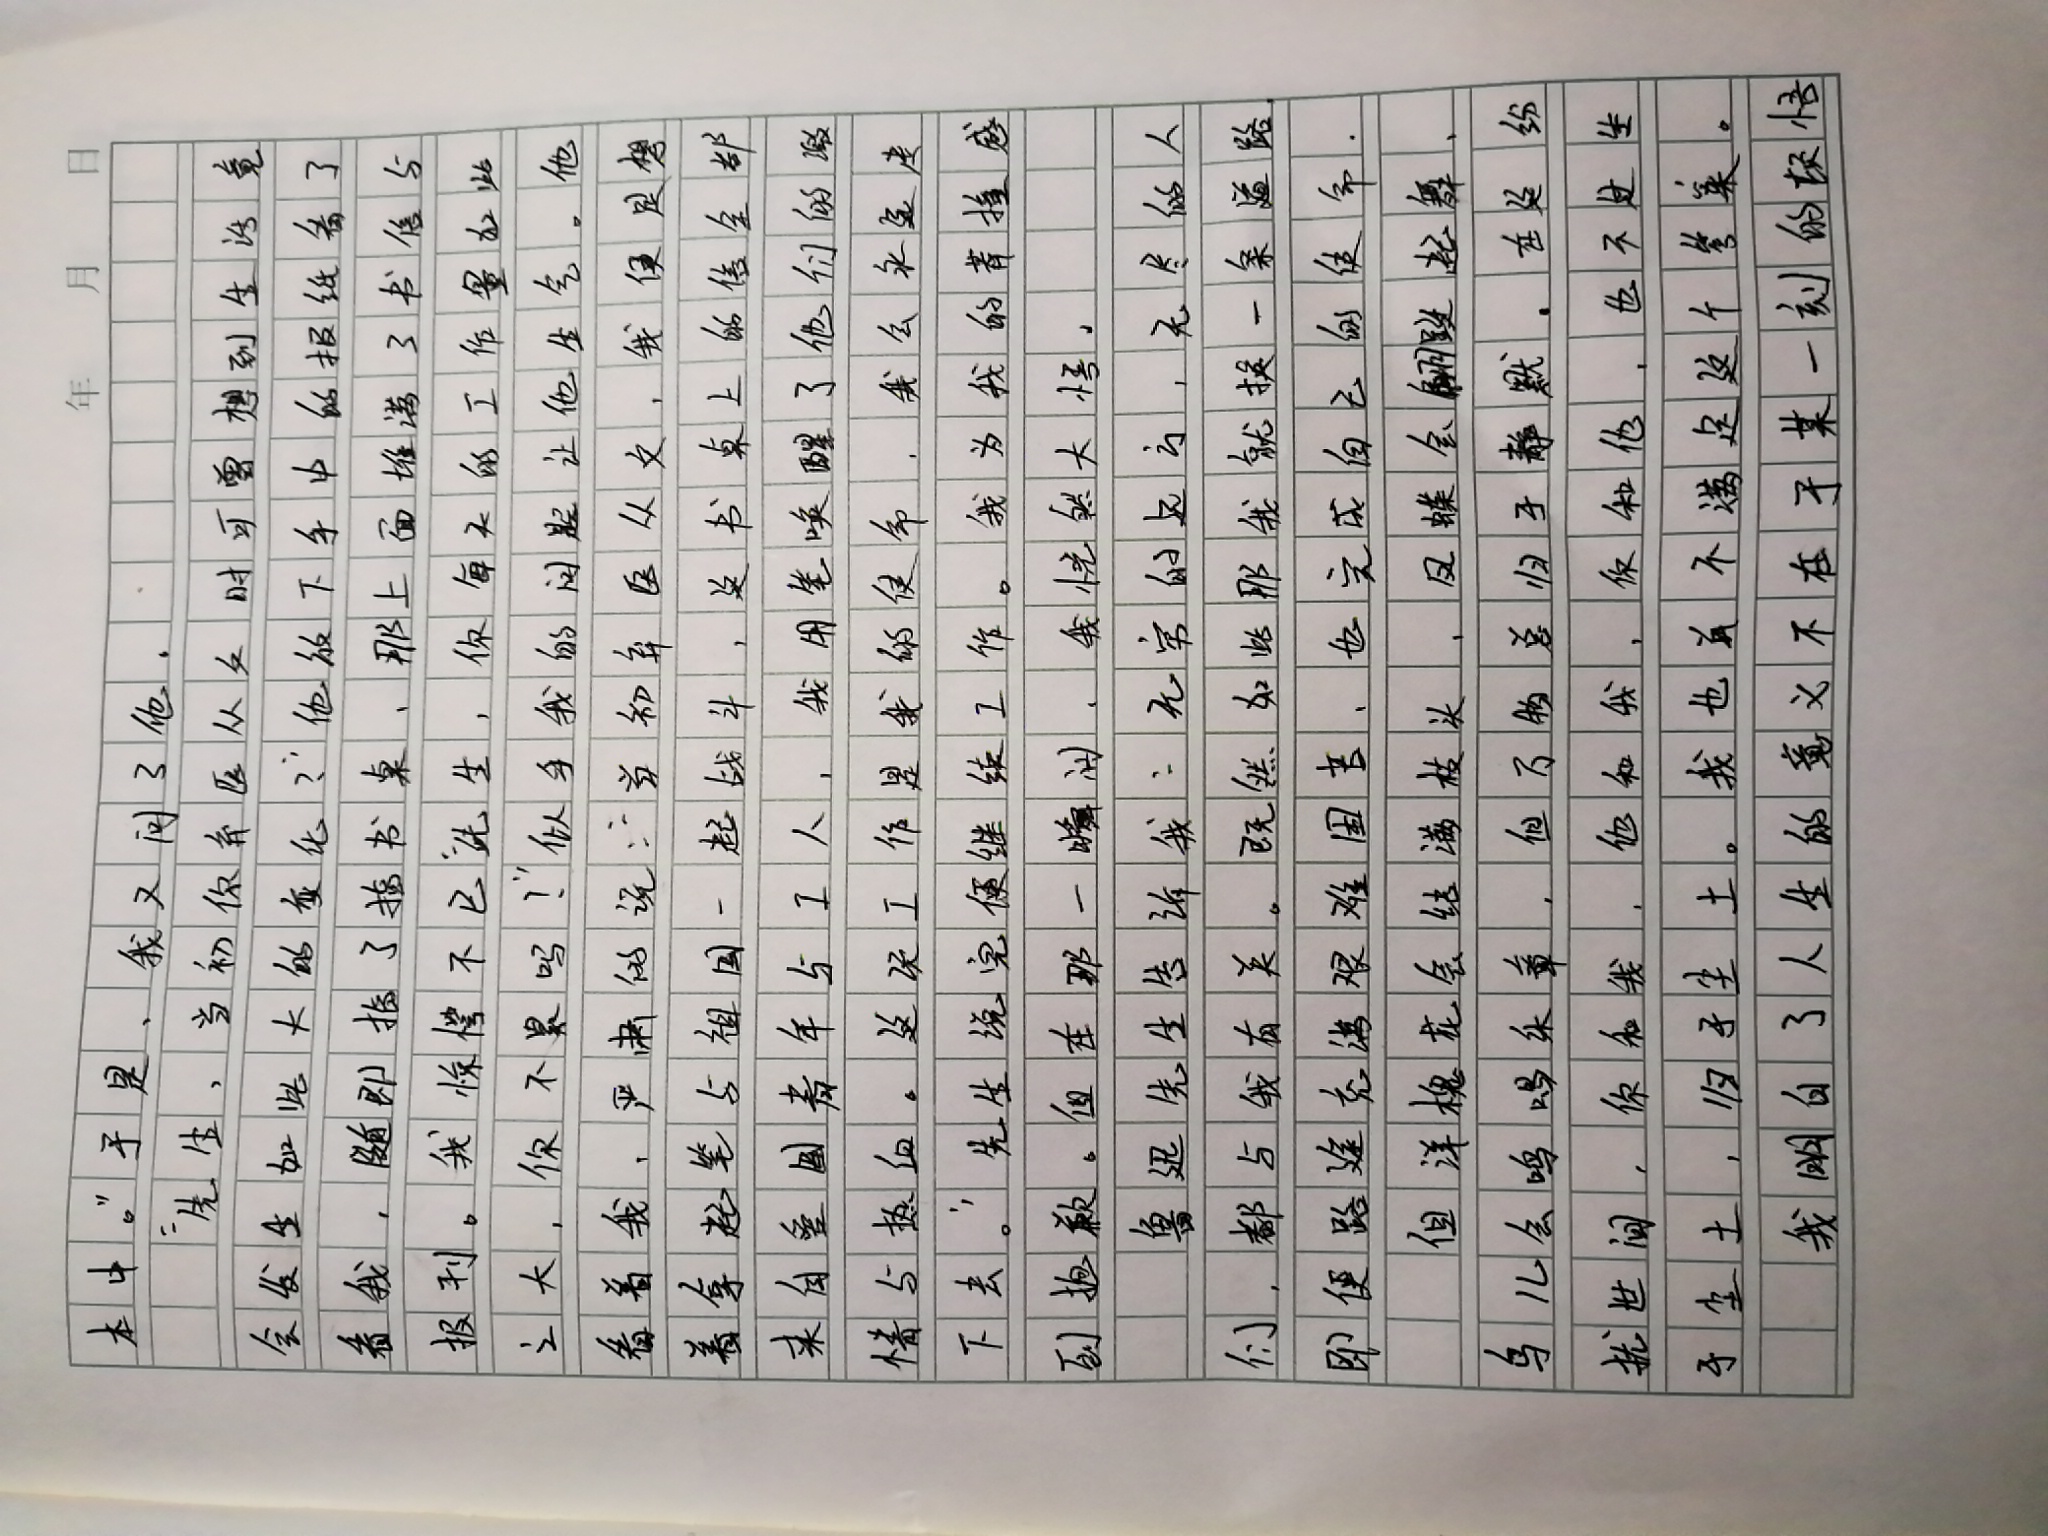 年 月 日
本中。”于是、我又问了他.
“先生、当初你弃医从文时可曾想到生活竟
会发生如此大的变化?”他放下手中的报纸看了
看我,随即指了指书桌、那上面堆满了书信与
报刊。我惊愕不已“先生,你每天的工作量如此
之大,你不累吗?”似乎我的问题让他生气。他
看着我、严肃的说:“当初弃医从文,我便是想
着拿起笔与祖国一起战斗,这书桌上的信全部
来自爱国青年与工人,我用笔唤醒了他们的激
情与热血。这项工作是我的使命.我会永远走
下去。”先生说完便继续工作。我为我的莽撞感
到抱歉。但在那一瞬间、我恍然大悟,
鲁迅先生告诉我:无穷的远方,无尽的人
们,都与我有关。既然如此那我就换一条道路.
即便路途充满艰难困苦、也完成自己的使命.
但洋槐花会结满枝头、凤蝶会翩跹起舞、
鸟儿会鸣唱乐章,但万物总归于静默.在这纷
扰世间,你和我,他和我,你和他,也不过生
于尘土,归于尘土。我也并不满足这个答案。
我明白了人生的意义不在于某一刻的惊悟